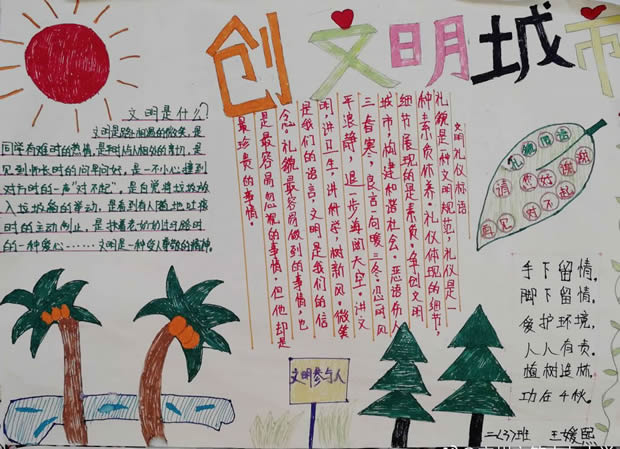 创文明城市
文明是什么?
文明是路相遇的微笑,是
同学有难时的热情,是平时与人相处的亲切,是
见到师长时的问早问好,是一不小心撞到
对方时的一声"对不起",是自觉将垃圾放
入垃圾箱的举动,是看到有人随地吐痰
时的主动制止,是扶着老奶奶过马路时
的一种爱心……文明是一种受人尊敬的精神。
文明礼仪标语
礼貌是一种文明规范,礼仪是一
种素质修养。礼仪体现的细节,
细节展现的是素质。争创文明
城市,构建和谐社会。恶语伤人
三春寒,良言向暖三冬。忍一时风
平浪静,退一步海阔天空。讲文
明,讲卫生,讲科学,树新风。微笑
是我们的语言,文明是我们的信
念。礼貌最容易做到的事情,也
是最容易忽视的事情,但他却是
最珍贵的事情。
礼貌用语
请 你好 谢谢
再见 对不起
手下留情,
脚下留情,
爱护环境,
人人有责。
植树造林,
功在千秋。
文明参与人
二(3)班 王媛熙